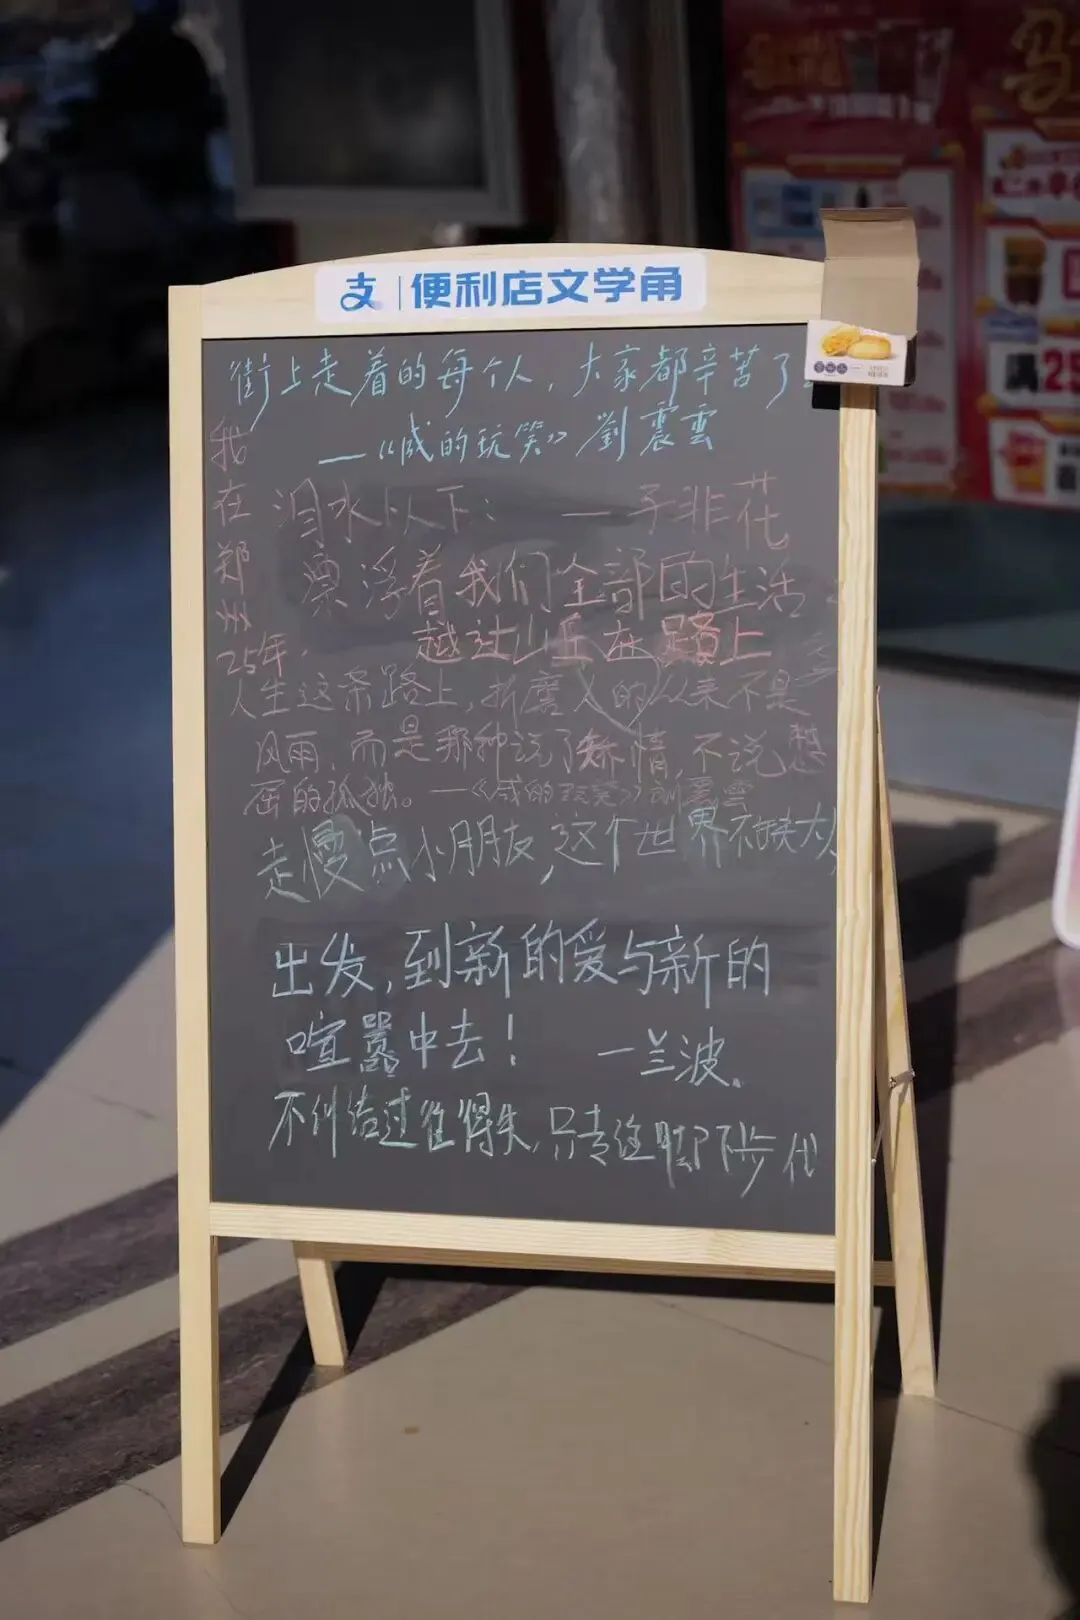 支|便利店文学角
街上走着的每个人，大家都辛苦了
—《咸的玩笑》劉震雲
我在郑州25年.
泪水以下： — 予非花
票浮着我们全部的生活
越过山丘在路上
人生这条路上，折磨人的从来不是
风雨，而是那种说了矫情，不说憋
屈的孤独。—《咸的玩笑》劉震雲
走慢点小朋友，这个世界不缺大人
出发，到新的爱与新的
喧嚣中去！ —兰波.
不纠结过往得失，只专注脚下步伐
满25